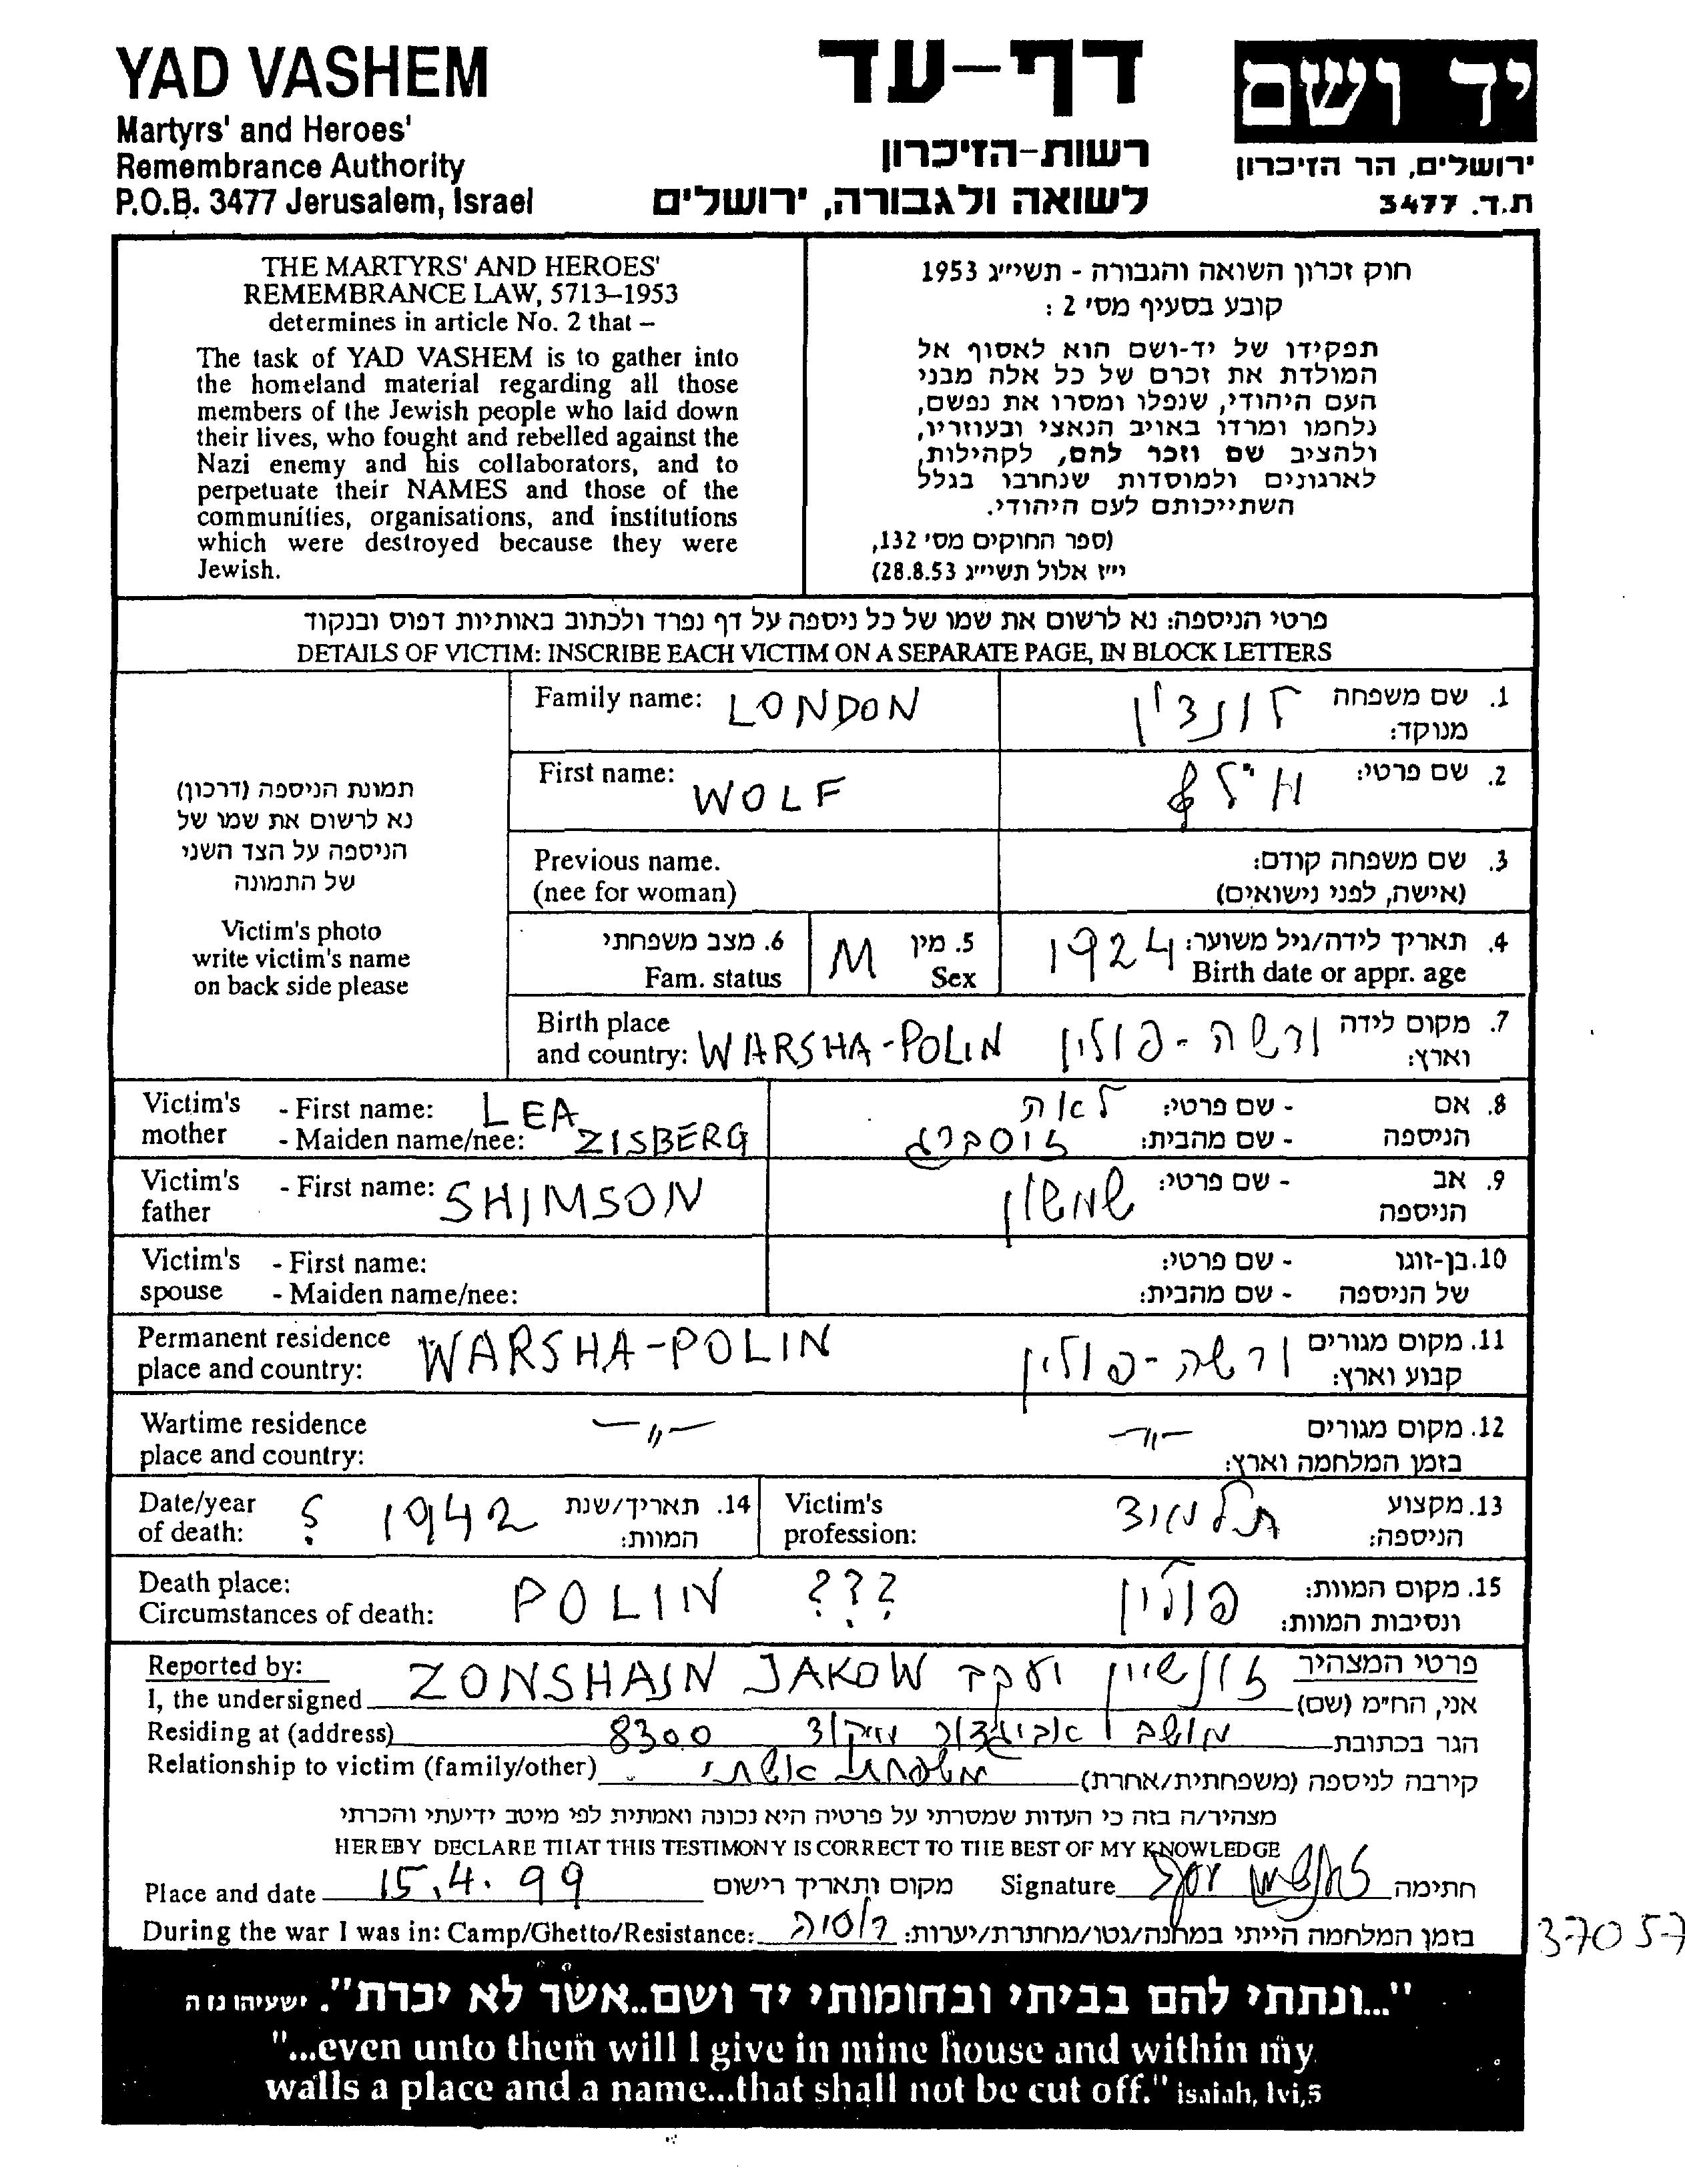 YAD VASHEM
Martyrs' and Heroes'
Remembrance Authority
P.O.B. 3477 Jerusalem, Israel
דף-עד
רשות-הזיכרון
לשואה ולגבורה, ירושלים
יד ושם
ירושלים, הר הזיכרון
ת.ד. 3477
THE MARTYRS' AND HEROES'
REMEMBRANCE LAW, 5713–1953
determines in article No. 2 that –
The task of YAD VASHEM is to gather into
the homeland material regarding all those
members of the Jewish people who laid down
their lives, who fought and rebelled against the
Nazi enemy and his collaborators, and to
perpetuate their NAMES and those of the
communities, organisations, and institutions
which were destroyed because they were
Jewish.
חוק זכרון השואה והגבורה - תשי״ג 1953
קובע בסעיף מס׳ 2 :
תפקידו של יד-ושם הוא לאסוף אל
המולדת את זכרם של כל אלה מבני
העם היהודי, שנפלו ומסרו את נפשם,
נלחמו ומרדו באויב הנאצי ובעוזריו,
ולהציב שם וזכר להם, לקהילות,
לארגונים ולמוסדות שנחרבו בגלל
השתייכותם לעם היהודי.
(ספר החוקים מס׳ 132,
י״ז אלול תשי״ג 28.8.53)
פרטי הניספה: נא לרשום את שמו של כל ניספה על דף נפרד ולכתוב באותיות דפוס ובנקוד
DETAILS OF VICTIM: INSCRIBE EACH VICTIM ON A SEPARATE PAGE, IN BLOCK LETTERS
תמונת הניספה (דרכון)
נא לרשום את שמו של
הניספה על הצד השני
של התמונה
Victim's photo
write victim's name
on back side please
Family name: LONDON
לונדון 1. שם משפחה
מנוקד:
First name: WOLF
2. שם פרטי:
Previous name.
(nee for woman)
3. שם משפחה קודם:
(אישה, לפני נישואים)
6. מצב משפחתי
Fam. status
M 5. מין
Sex
1924 4. תאריך לידה/גיל משוער:
Birth date or appr. age
Birth place
and country: WARSHA-POLIN
ורשה-פולין 7. מקום לידה
וארץ:
Victim's - First name: LEA
mother - Maiden name/nee: ZISBERG
8. אם - שם פרטי: לאה
הניספה - שם מהבית: זוסברג
Victim's - First name: SHIMSON
father
9. אב - שם פרטי: שמשון
הניספה
Victim's - First name:
spouse - Maiden name/nee:
10. בן-זוגו - שם פרטי:
של הניספה - שם מהבית:
Permanent residence WARSHA-POLIN
place and country:
11. מקום מגורים ורשה-פולין
קבוע וארץ:
Wartime residence —〃—
place and country:
12. מקום מגורים —〃—
בזמן המלחמה וארץ:
Date/year ? 1942
of death:
14. תאריך/שנת
המוות:
Victim's
profession:
13. מקצוע תלמיד
הניספה:
Death place: POLIN ???
Circumstances of death:
15. מקום המוות: פולין
ונסיבות המוות:
Reported by: ZONSHAJN JAKOW
פרטי המצהיר
I, the undersigned
אני, הח״מ (שם) זונשיין יעקב
Residing at (address) 8300
הגר בכתובת מושב אביגדור מיקוד
Relationship to victim (family/other)
קירבה לניספה (משפחתית/אחרת) משפחת אשתי
מצהיר/ה בזה כי העדות שמסרתי על פרטיה היא נכונה ואמתית לפי מיטב ידיעתי והכרתי
HEREBY DECLARE THAT THIS TESTIMONY IS CORRECT TO THE BEST OF MY KNOWLEDGE
Place and date 15.4.99 מקום ותאריך רישום
Signature חתימה
During the war I was in: Camp/Ghetto/Resistance: רוסיה בזמן המלחמה הייתי במחנה/גטו/מחתרת/יערות:
37057
"...ונתתי להם בביתי ובחומותי יד ושם..אשר לא יכרת". ישעיהו נו ה
"...even unto them will I give in mine house and within my
walls a place and a name...that shall not be cut off." isaiah, lvi,5